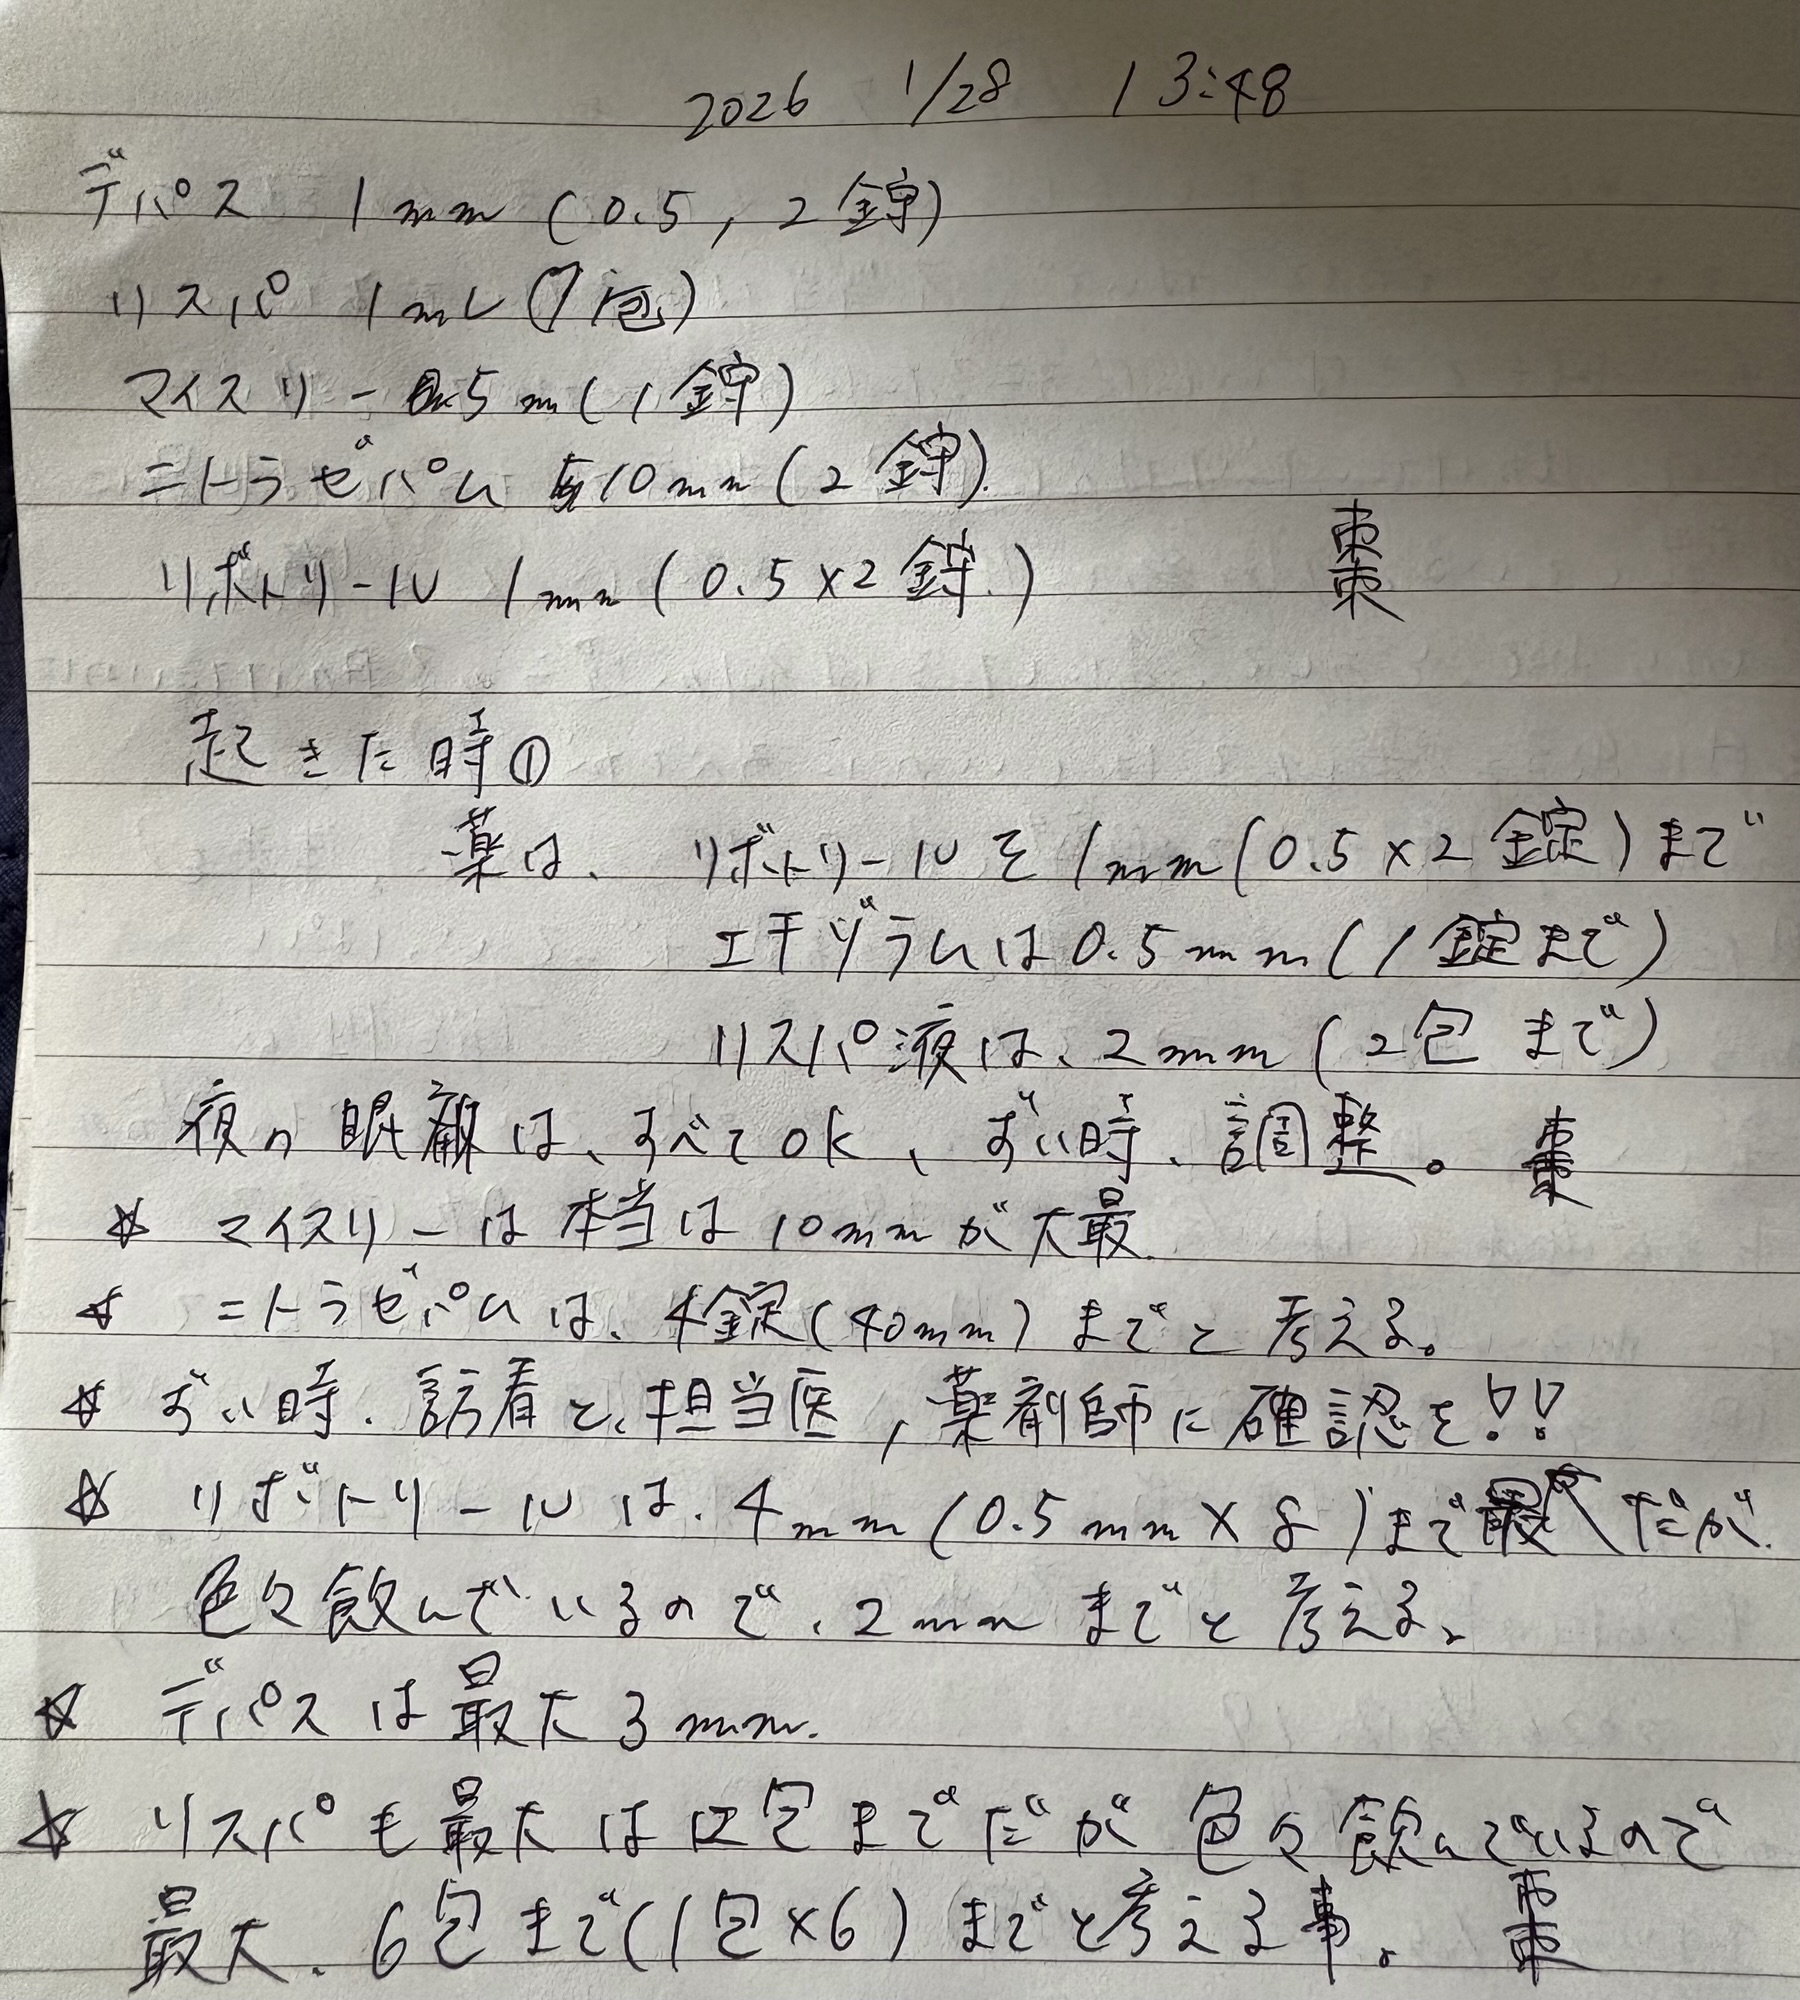 2026 1/28 13:48
デパス 1mm (0.5, 2錠)
リスパ 1mL (1包)
マイスリー 5m (1錠)
ニトラゼパム 10mm (2錠)
リボトリール 1mm (0.5×2錠)
棗
起きた時①
薬は、 リボトリールを1mm(0.5×2錠)まで
エチゾラムは0.5mm(1錠まで)
リスパ液は、2mm(2包まで)
夜の眠剤は、すべてOK、ずい時、調整。 棗
☆ マイスリーは本当は10mmが大最
☆ ニトラゼパムは、4錠(40mm)までと考える。
☆ ずい時、訪看と、担当医,薬剤師に確認を!!
☆ リボトリールは、4mm(0.5mm×8)まで だが、
色々飲んでいるので、2mmまでと考える、
☆ デパスは最大3mm.
☆ リスパも最大は12包までだが色々飲んでいるので
最大、6包まで(1包×6)までと考える事。 棗